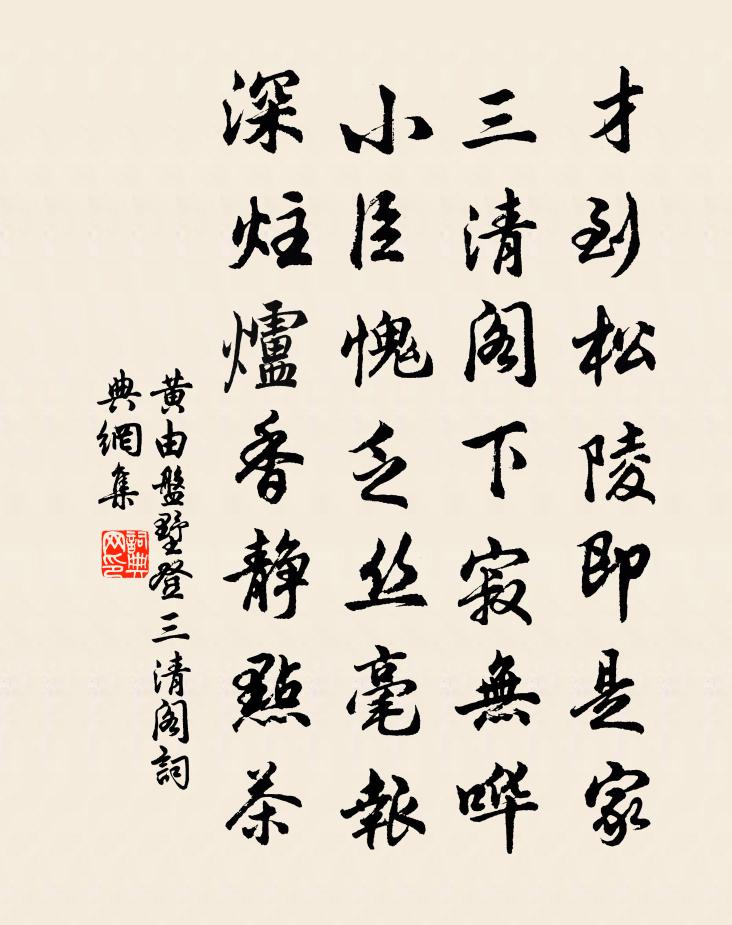 才到松陵即是家
三清阁下寂無哗
小臣愧乏丝毫報
深炷爐香静點茶
黄由盤墅登三清阁詞
典網集
詞典网印